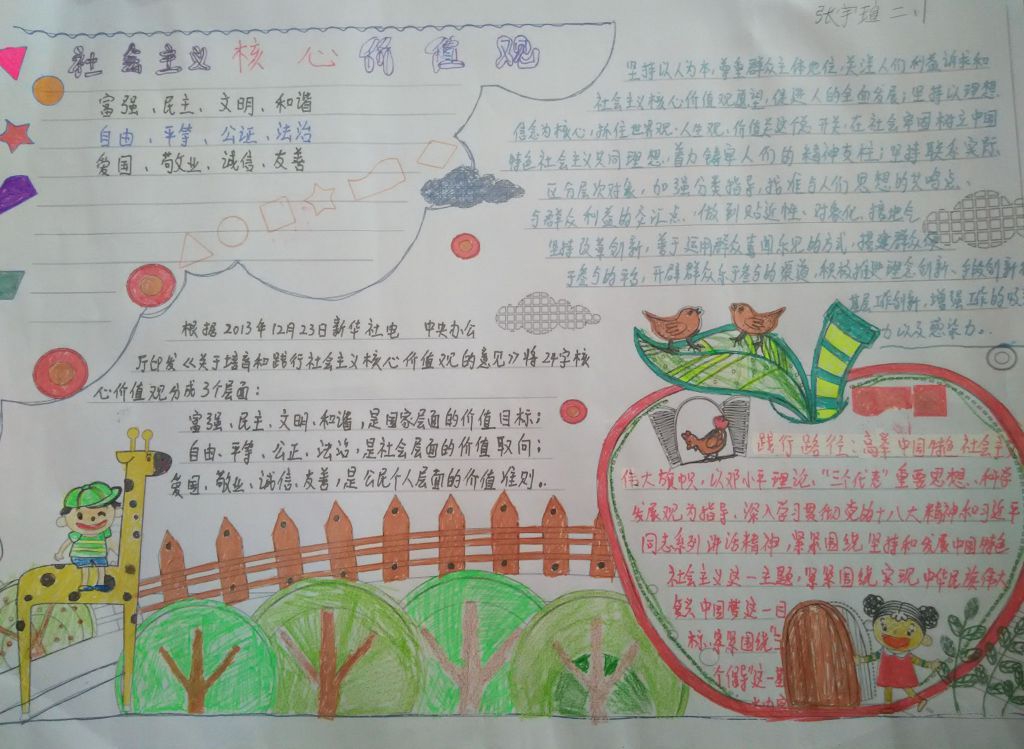 张宇瑄 二.1
社会主义核心价值观
富强、民主、文明、和谐
自由、平等、公正、法治
爱国、敬业、诚信、友善
坚持以人为本,尊重群众主体地位,关注人们利益诉求和
社会主义核心价值观愿望,促进人的全面发展;坚持以理想
信念为核心,抓住世界观、人生观、价值观这个总开关,在社会牢固树立中国
特色社会主义共同理想,着力铸牢人们的精神支柱;坚持联系实际,
区分层次对象,加强分类指导,找准与人们思想的共鸣点、
与群众利益的交汇点,做到贴近性、对象化、接地气
坚持改革创新,善于运用群众喜闻乐见的方式,搭建群众便
于参与的平台,开辟群众乐于参与的渠道,积极推进理念创新、手段创新
基层工作创新,增强工作的吸
力以及感染力。
根据2013年12月23日新华社电 中央办公
厅印发《关于培育和践行社会主义核心价值观的意见》将24字核
心价值观分成3个层面:
富强、民主、文明、和谐,是国家层面的价值目标;
自由、平等、公正、法治,是社会层面的价值取向;
爱国、敬业、诚信、友善,是公民个人层面的价值准则。
践行路径:高举中国特色社会主
伟大旗帜,以邓小平理论、“三个代表”重要思想、科学
发展观为指导,深入学习贯彻党的十八大精神和习近平
同志系列讲话精神,紧紧围绕坚持和发展中国特色
社会主义这一主题,紧紧围绕实现中华民族伟大
复兴中国梦这一目
标,紧紧围绕“三
个倡导”这一